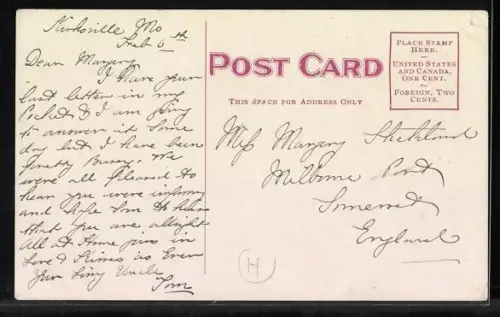 Kirksville Mo
Feb 6th
Dear Margary
I have your
last letter in my
Pocket & I am going
to answer it some
day but I have been
pretty Busy. We
were all pleased to
hear you were
and hope soon to hear
that you are allright
All at Home join in
Love & Kisses as Ever
Your Loving Uncle
Tom
POST CARD
THIS SPACE FOR ADDRESS ONLY
PLACE STAMP
HERE.
UNITED STATES
AND CANADA,
ONE CENT.
FOREIGN, TWO
CENTS.
Miss Margary
Milborne Port
Somerset
England
H